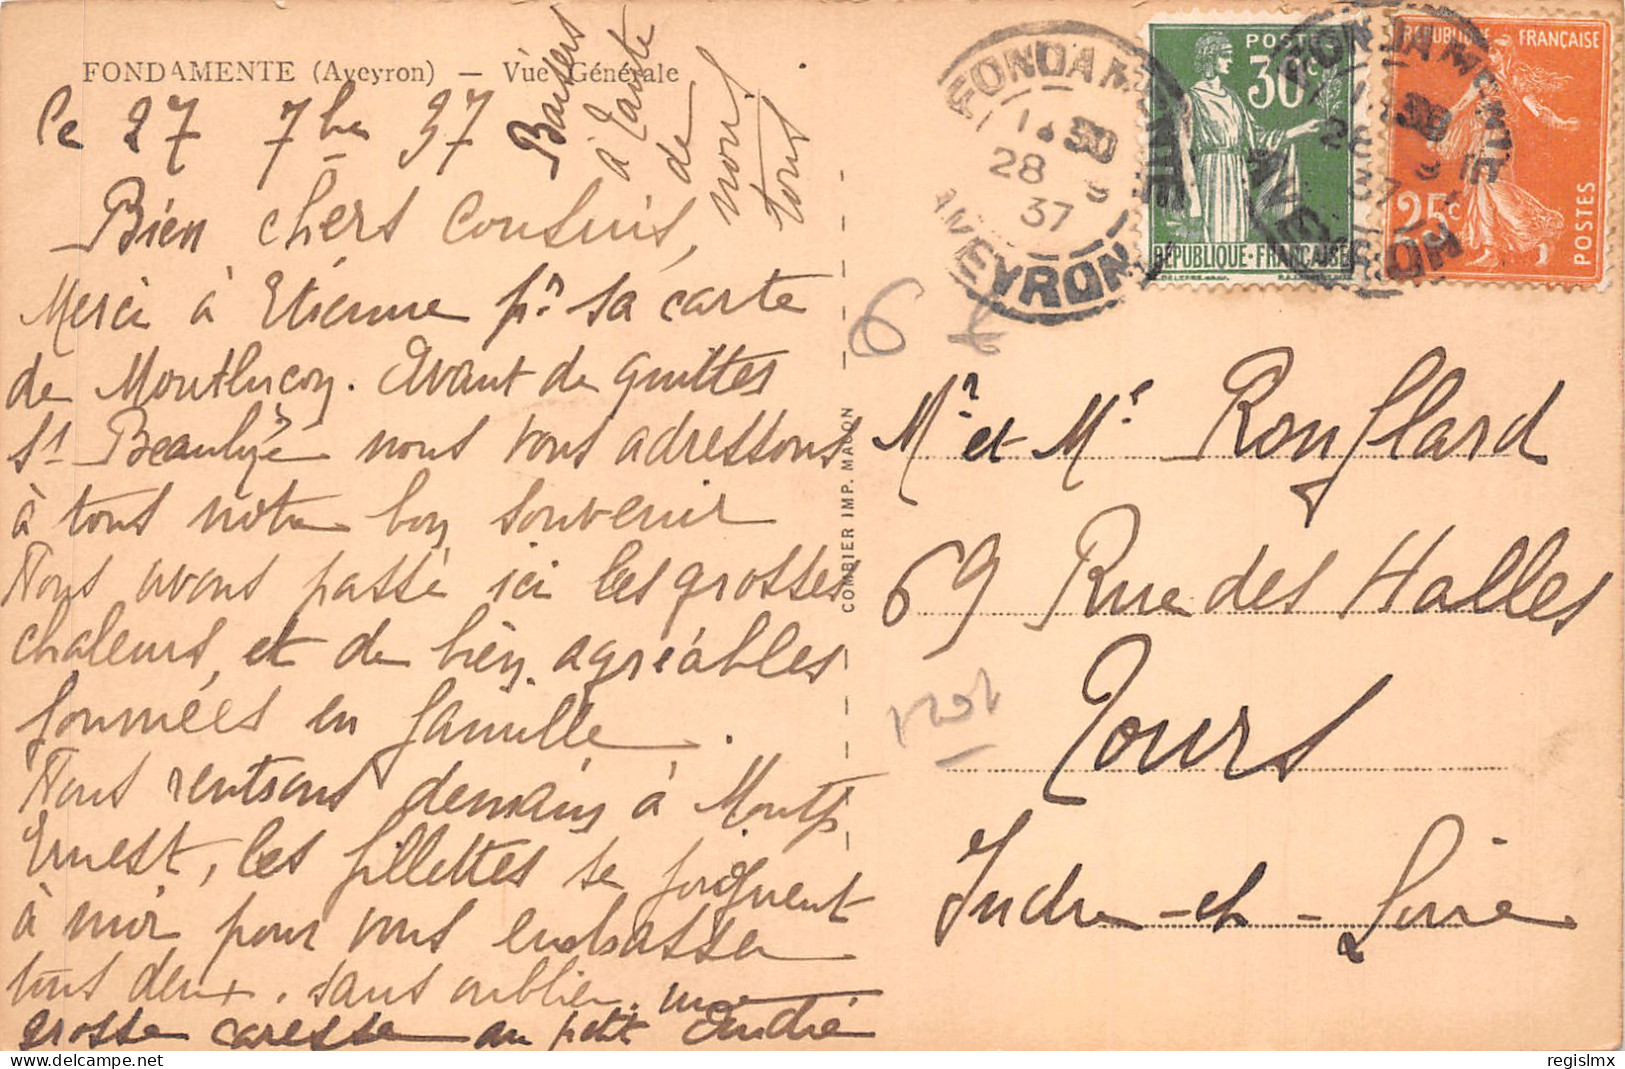 FONDAMENTE (Aveyron) — Vue Générale
Le 27 7bre 37
Baisers
à Tante
de
nous
tous
Bien chers Cousins,
Merci à Etienne pr sa carte
de Montluçon. Avant de quitter
St Beaulize nous vous adressons
à tous notre bon souvenir
Nous avons passé ici les grosses
chaleurs, et de bien agréables
journées en famille.
Nous rentrons demain à Montp.
Ernest, les fillettes se joignent
à moi pour vous embrasser
tous deux. sans oublier une
grosse caresse au petit André
COMBIER IMP. MACON
FONDAMENTE
28
37
AVEYRON
POSTES
30c
RÉPUBLIQUE FRANÇAISE
FONDAMENTE
28
37
AVEYRON
REPUBLIQUE FRANÇAISE
25c
POSTES
6
Mr et Me Ronflard
69 Rue des Halles
Tours
Indre-et-Loire
regisImx